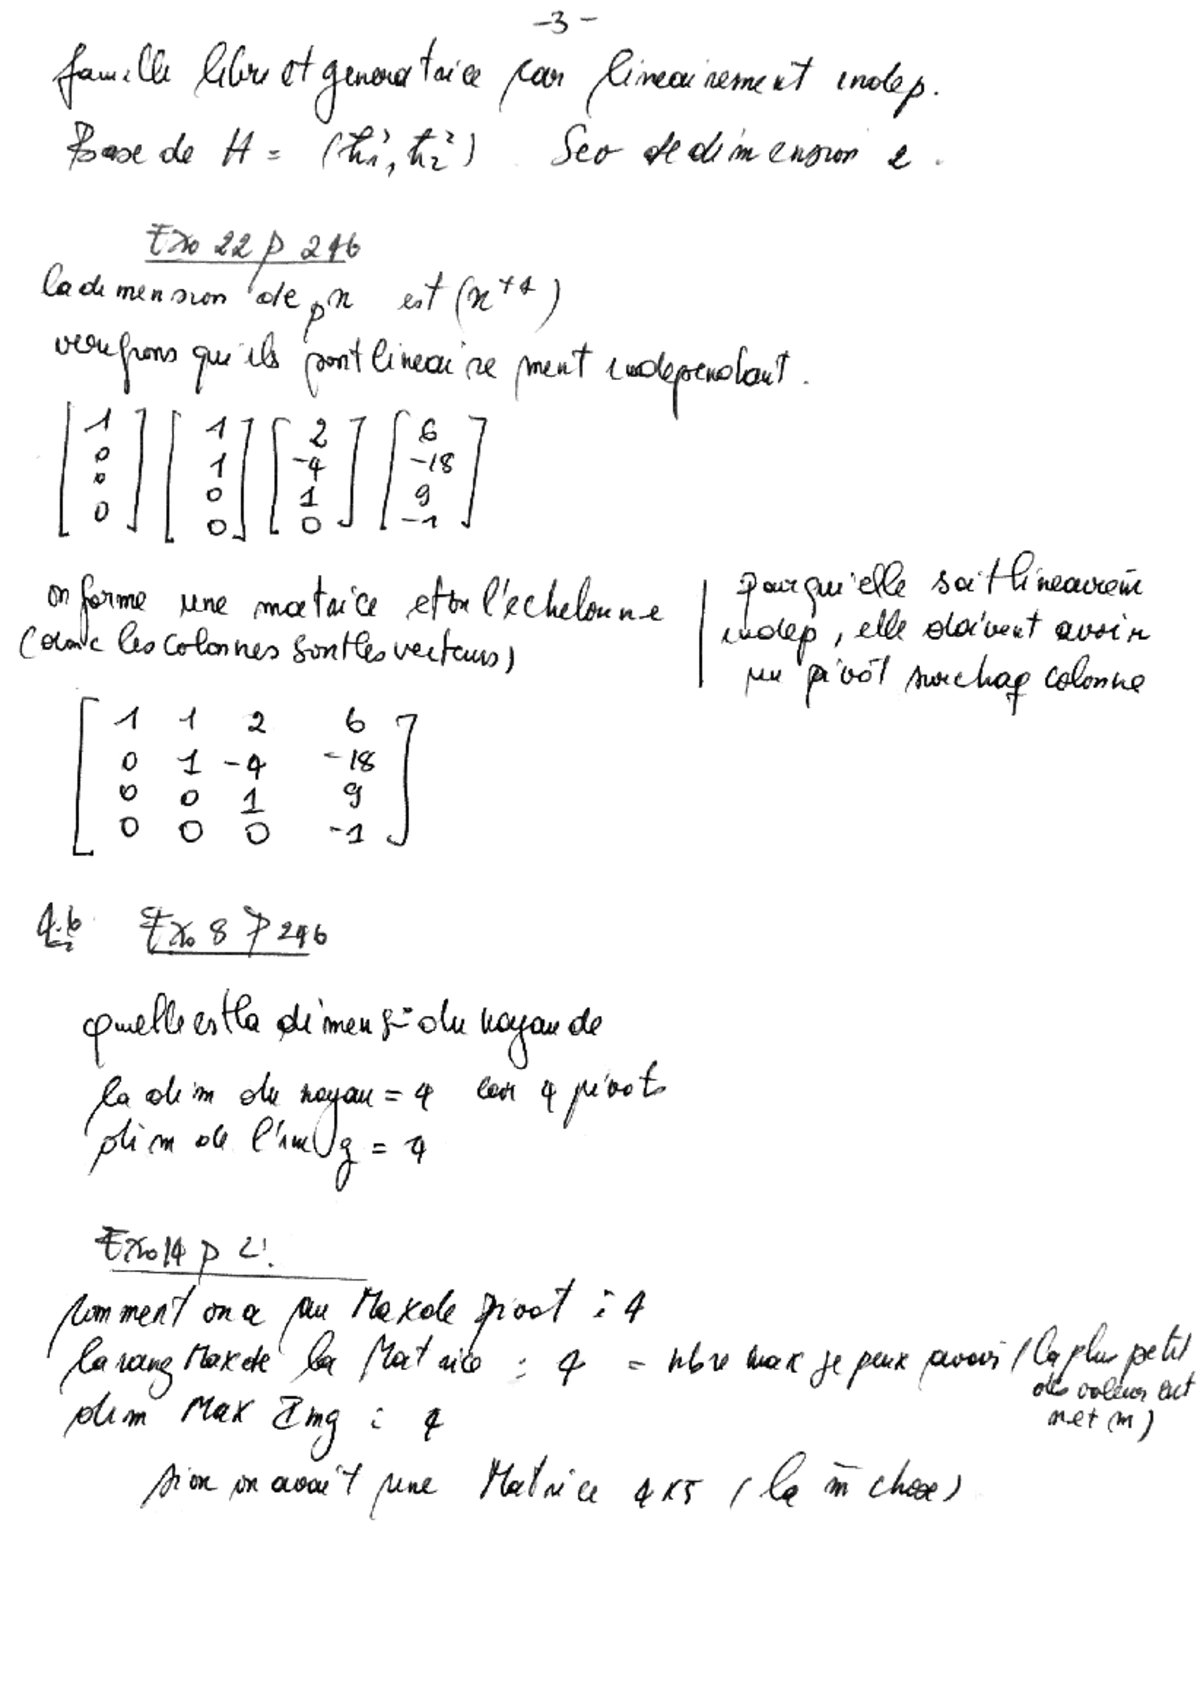 -3-
famille libre et generatrice car lineairement indep.
Base de H = (h1, h2) Sev de dimension 2.
Exo 22 p 246
la dimension de pn est (n+1)
verifions qu'ils sont lineairement independant.
[1 0 0 0] [1 1 0 0] [2 -4 1 0] [6 -18 9 -1]
on forme une matrice et on l'échelonne
(dont les colonnes sont les vecteurs)
pour qu'elle soit lineairem
indep, elle doivent avoir
un pivôt sur chaq colonne
1 1 2 6
0 1 -4 -18
0 0 1 9
0 0 0 -1
4.6 Exo 8 P 246
quelle est la dimens° du noyau de
la dim du noyau = 4 car 4 pivots
dim de l'img = 4
Exo 14 p 2
comment on a un Max de pivot : 4
la rang Max de la Matrice : 4 = nbre max je peux avoir (la plus petit
des valeurs ent
n et m)
dim Max Img : 4
si on avait une Matrice 4x5 (la m̄ chose)